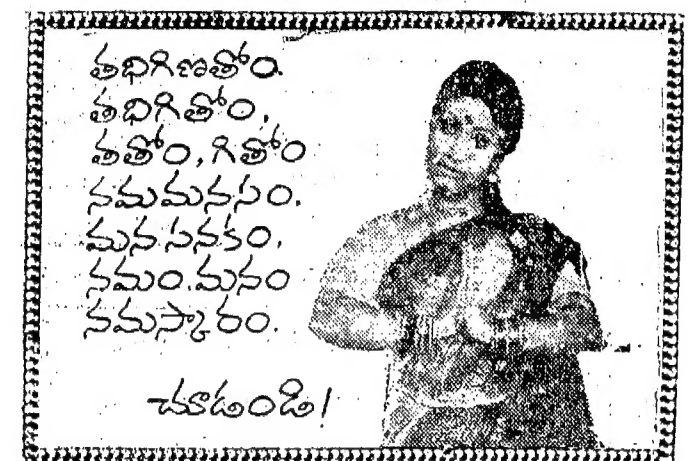 తధిగిణతోం.
తధిగితోం,
తతోం, గితోం
నమమనసం.
మన సనకం,
నమం.మనం
నమస్కారం.
చూడండి!